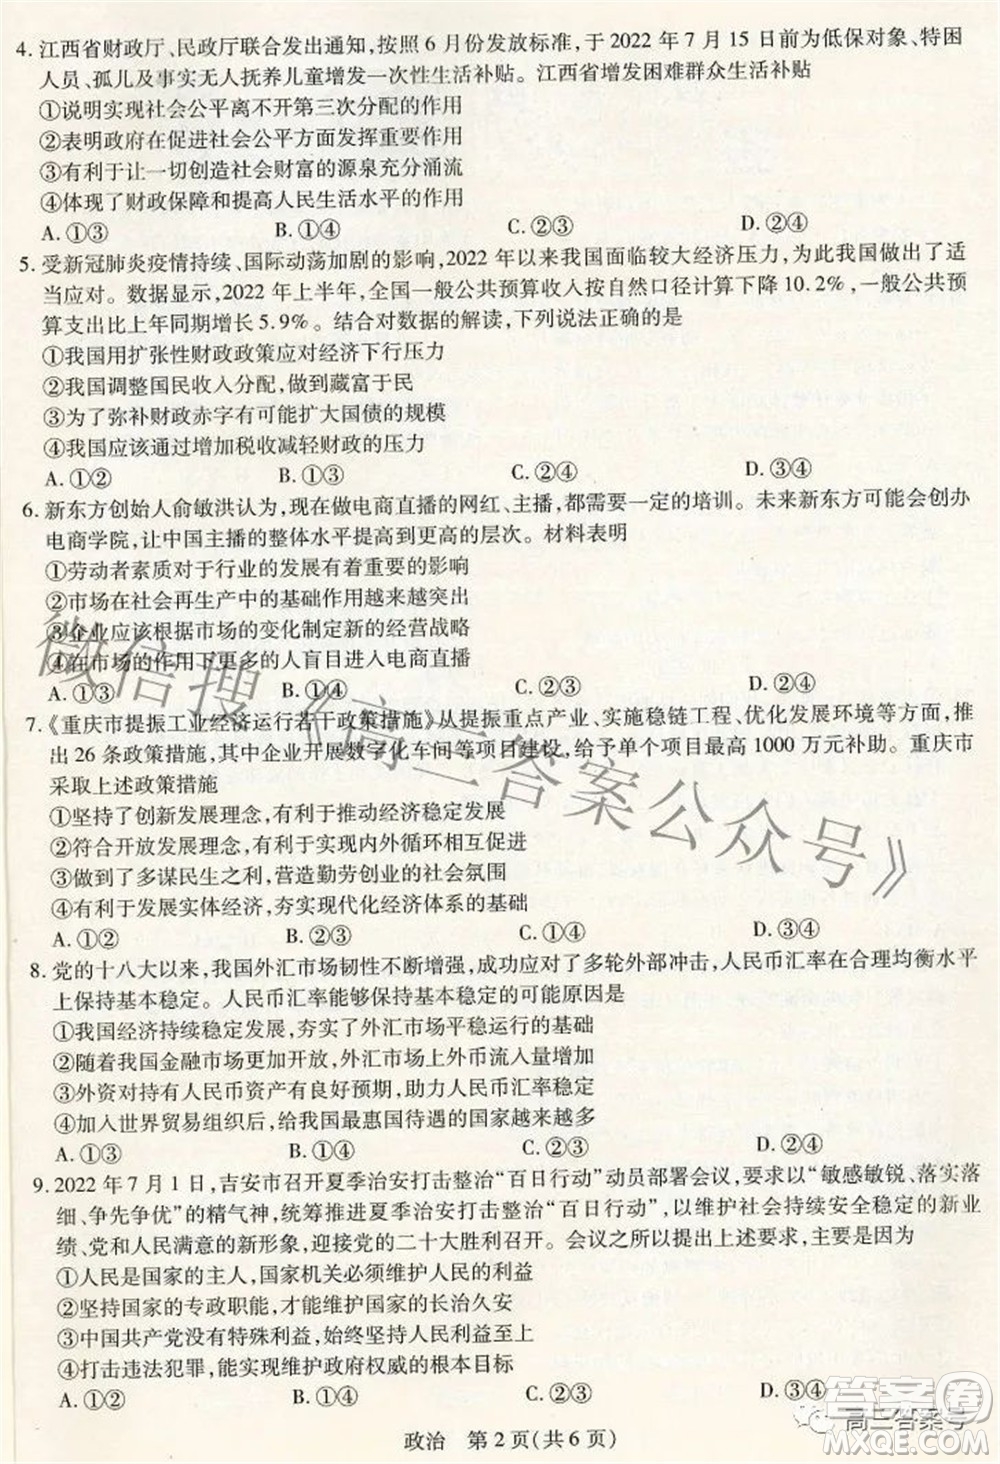 4. 江西省财政厅、民政厅联合发出通知,按照6月份发放标准,于2022年7月15日前为低保对象、特困
人员、孤儿及事实无人抚养儿童增发一次性生活补贴。江西省增发困难群众生活补贴
①说明实现社会公平离不开第三次分配的作用
②表明政府在促进社会公平方面发挥重要作用
③有利于让一切创造社会财富的源泉充分涌流
④体现了财政保障和提高人民生活水平的作用
A. ①③ B. ①④ C. ②③ D. ②④
5. 受新冠肺炎疫情持续、国际动荡加剧的影响,2022年以来我国面临较大经济压力,为此我国做出了适
当应对。数据显示,2022年上半年,全国一般公共预算收入按自然口径计算下降10.2%,一般公共预
算支出比上年同期增长5.9%。结合对数据的解读,下列说法正确的是
①我国用扩张性财政政策应对经济下行压力
②我国调整国民收入分配,做到藏富于民
③为了弥补财政赤字有可能扩大国债的规模
④我国应该通过增加税收减轻财政的压力
A. ①② B. ①③ C. ②④ D. ③④
6. 新东方创始人俞敏洪认为,现在做电商直播的网红、主播,都需要一定的培训。未来新东方可能会创办
电商学院,让中国主播的整体水平提高到更高的层次。材料表明
①劳动者素质对于行业的发展有着重要的影响
②市场在社会再生产中的基础作用越来越突出
③企业应该根据市场的变化制定新的经营战略
④在市场的作用下更多的人盲目进入电商直播
A. ①③ B. ①④ C. ②③ D. ②④
7. 《重庆市提振工业经济运行若干政策措施》从提振重点产业、实施稳链工程、优化发展环境等方面,推
出26条政策措施,其中企业开展数字化车间等项目建设,给予单个项目最高1000万元补助。重庆市
采取上述政策措施
①坚持了创新发展理念,有利于推动经济稳定发展
②符合开放发展理念,有利于实现内外循环相互促进
③做到了多谋民生之利,营造勤劳创业的社会氛围
④有利于发展实体经济,夯实现代化经济体系的基础
A. ①② B. ①④ C. ②③ D. ③④
8. 党的十八大以来,我国外汇市场韧性不断增强,成功应对了多轮外部冲击,人民币汇率在合理均衡水平
上保持基本稳定。人民币汇率能够保持基本稳定的可能原因是
①我国经济持续稳定发展,夯实了外汇市场平稳运行的基础
②随着我国金融市场更加开放,外汇市场上外币流入量增加
③外资对持有人民币资产有良好预期,助力人民币汇率稳定
④加入世界贸易组织后,给我国最惠国待遇的国家越来越多
A. ①③ B. ①④ C. ②③ D. ②④
9. 2022年7月1日,吉安市召开夏季治安打击整治“百日行动”动员部署会议,要求以“敏感敏锐、落实落
细、争先争优”的精气神,统筹推进夏季治安打击整治“百日行动”,以维护社会持续安全稳定的新业
绩、党和人民满意的新形象,迎接党的二十大胜利召开。会议之所以提出上述要求,主要是因为
①人民是国家的主人,国家机关必须维护人民的利益
②坚持国家的专政职能,才能维护国家的长治久安
③中国共产党没有特殊利益,始终坚持人民利益至上
④打击违法犯罪,能实现维护政府权威的根本目标
A. ①② B. ①④ C. ②③ D. ③④
政治 第2页(共6页)
微信搜《高三答案公众号》
高三答案号
答案圈
MXQE.COM